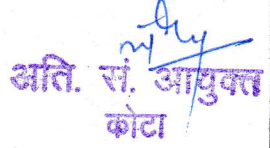 अति. सं. आयुक्त
कोटा